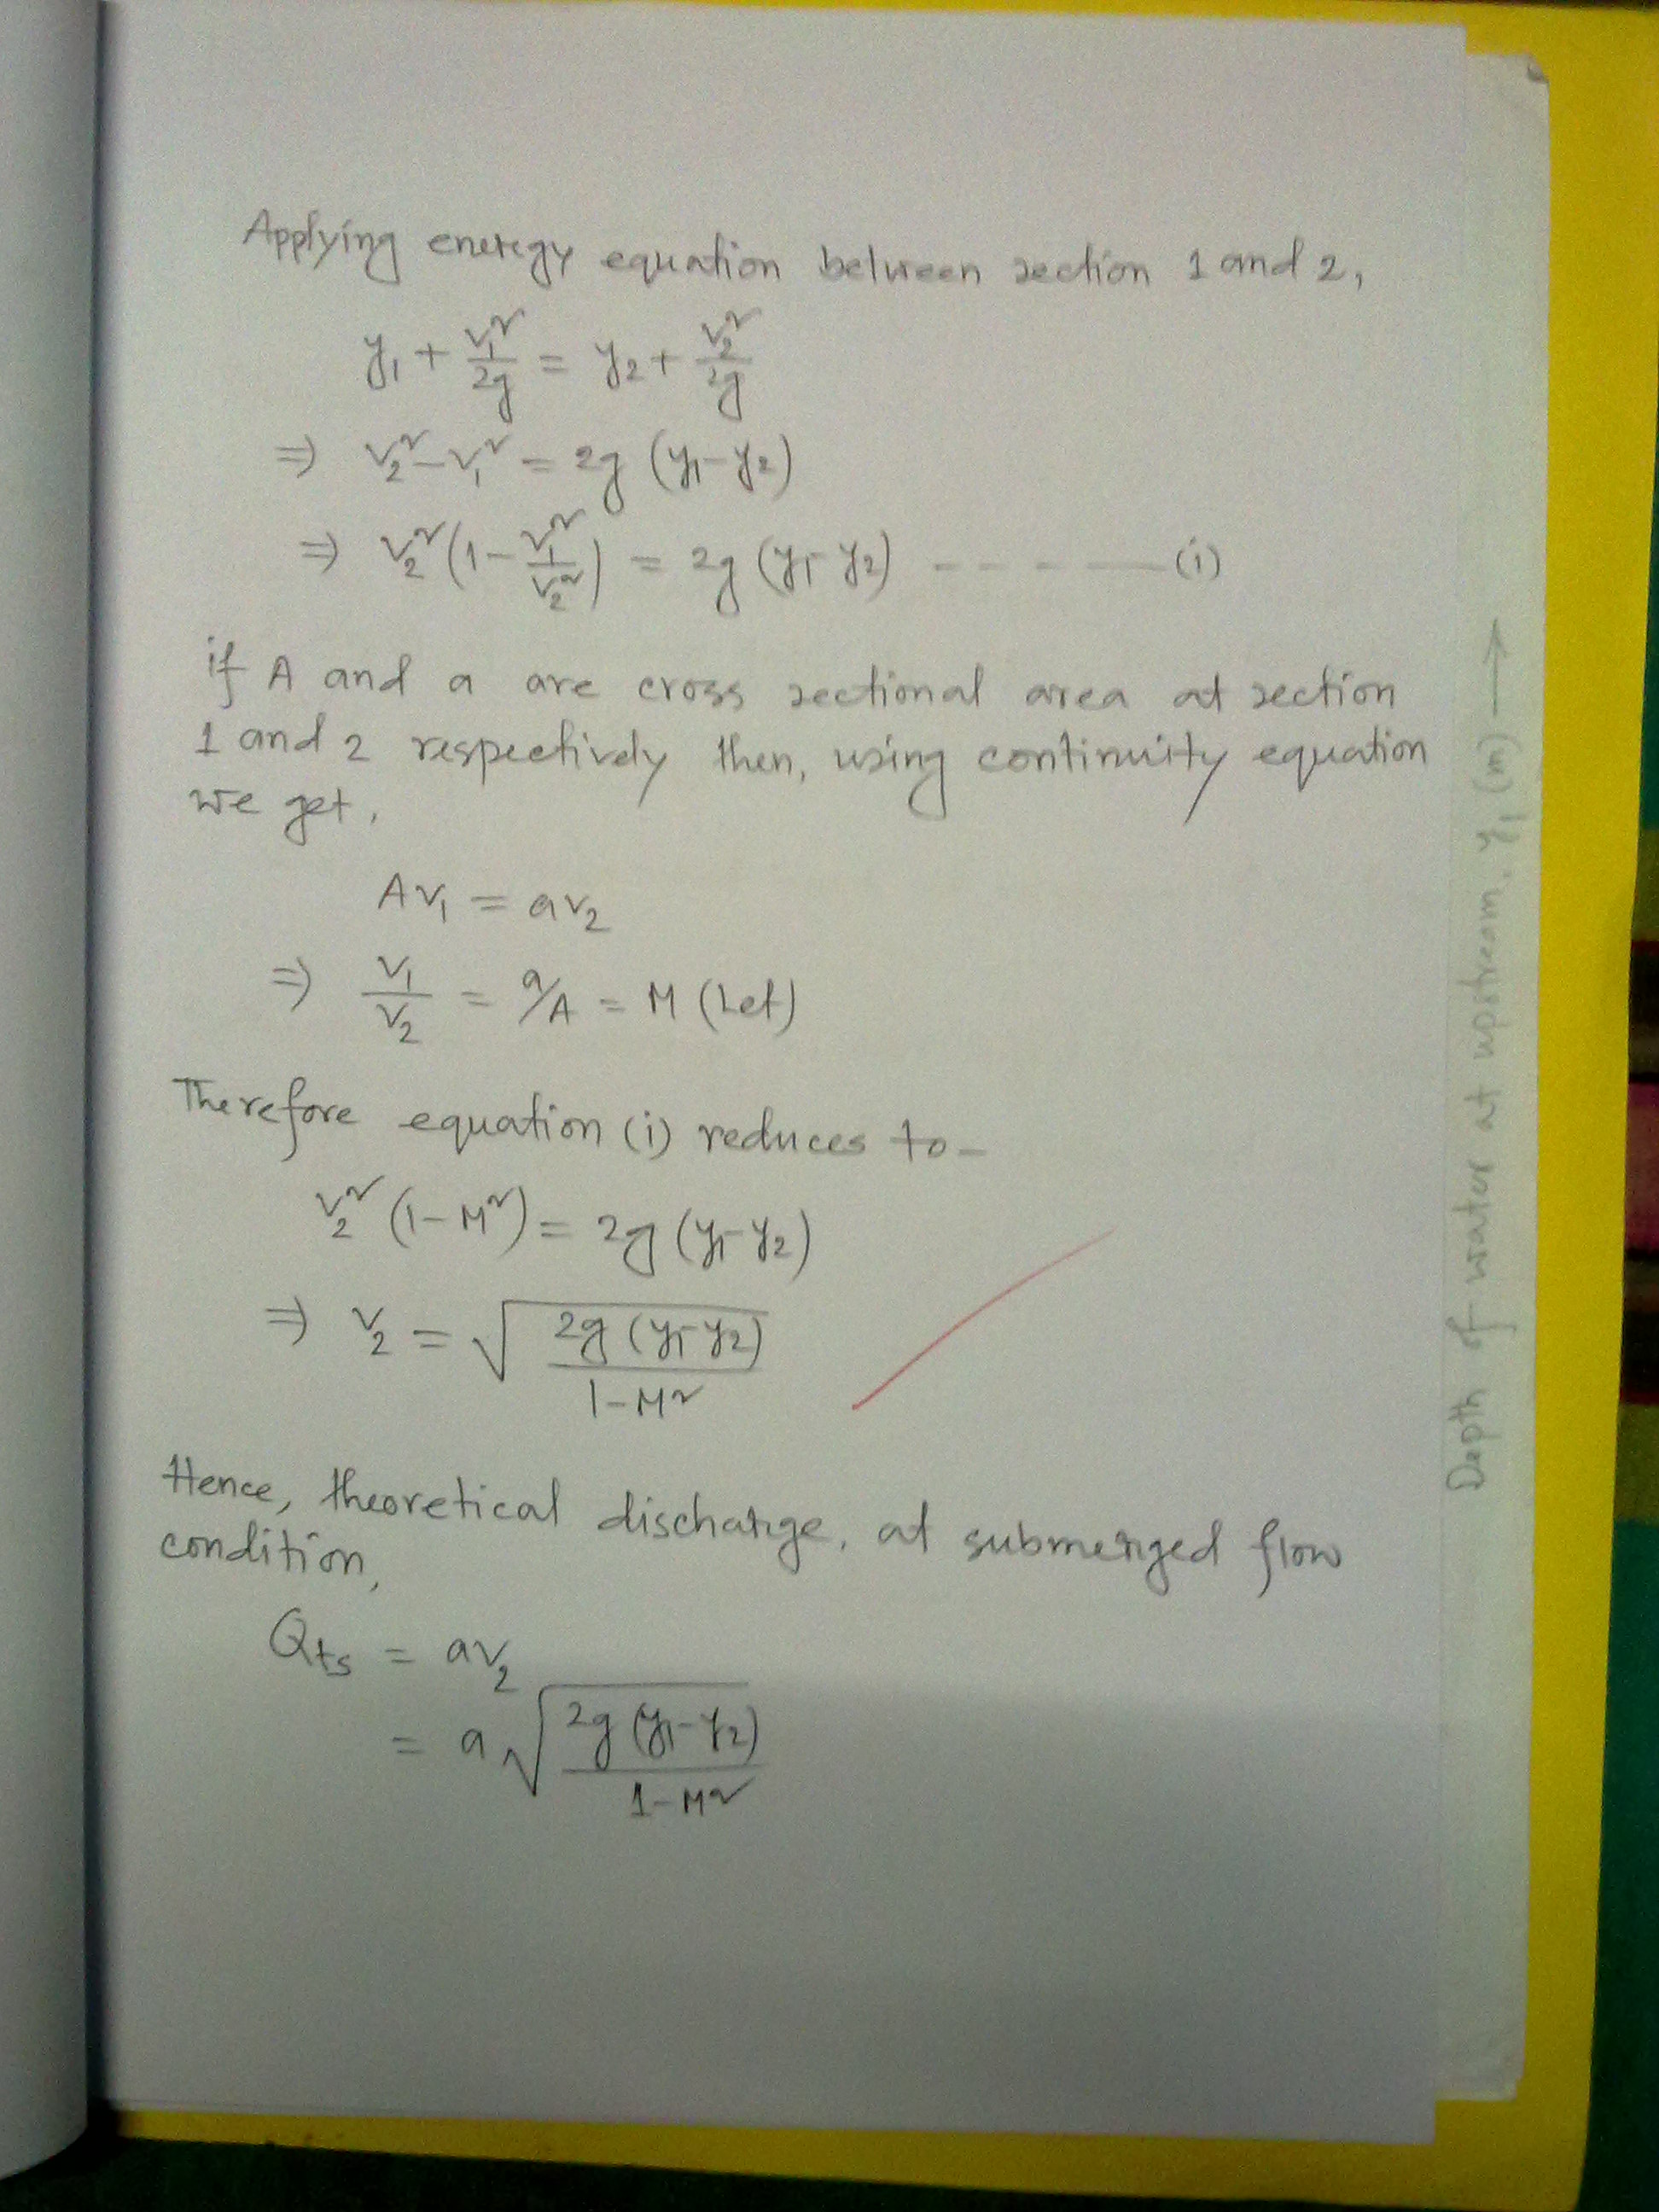 Applying energy equation between section 1 and 2,
y₁ + v₁²/2g = y₂ + v₂²/2g
⇒ v₂² - v₁² = 2g (y₁ - y₂)
⇒ v₂² (1 - v₁²/v₂²) = 2g (y₁ - y₂) - - - - — (i)
if A and a are cross sectional area at section
1 and 2 respectively then, using continuity equation
we get,
Av₁ = av₂
⇒ v₁/v₂ = a/A = M (Let)
Therefore equation (i) reduces to -
v₂² (1 - M²) = 2g (y₁ - y₂)
⇒ v₂ = √(2g (y₁ - y₂)/(1 - M²))
Hence, theoretical discharge, at submerged flow
condition,
Qts = av₂
= a √(2g (y₁ - y₂)/(1 - M²))
Depth of water at upstream, y₁ (m) →